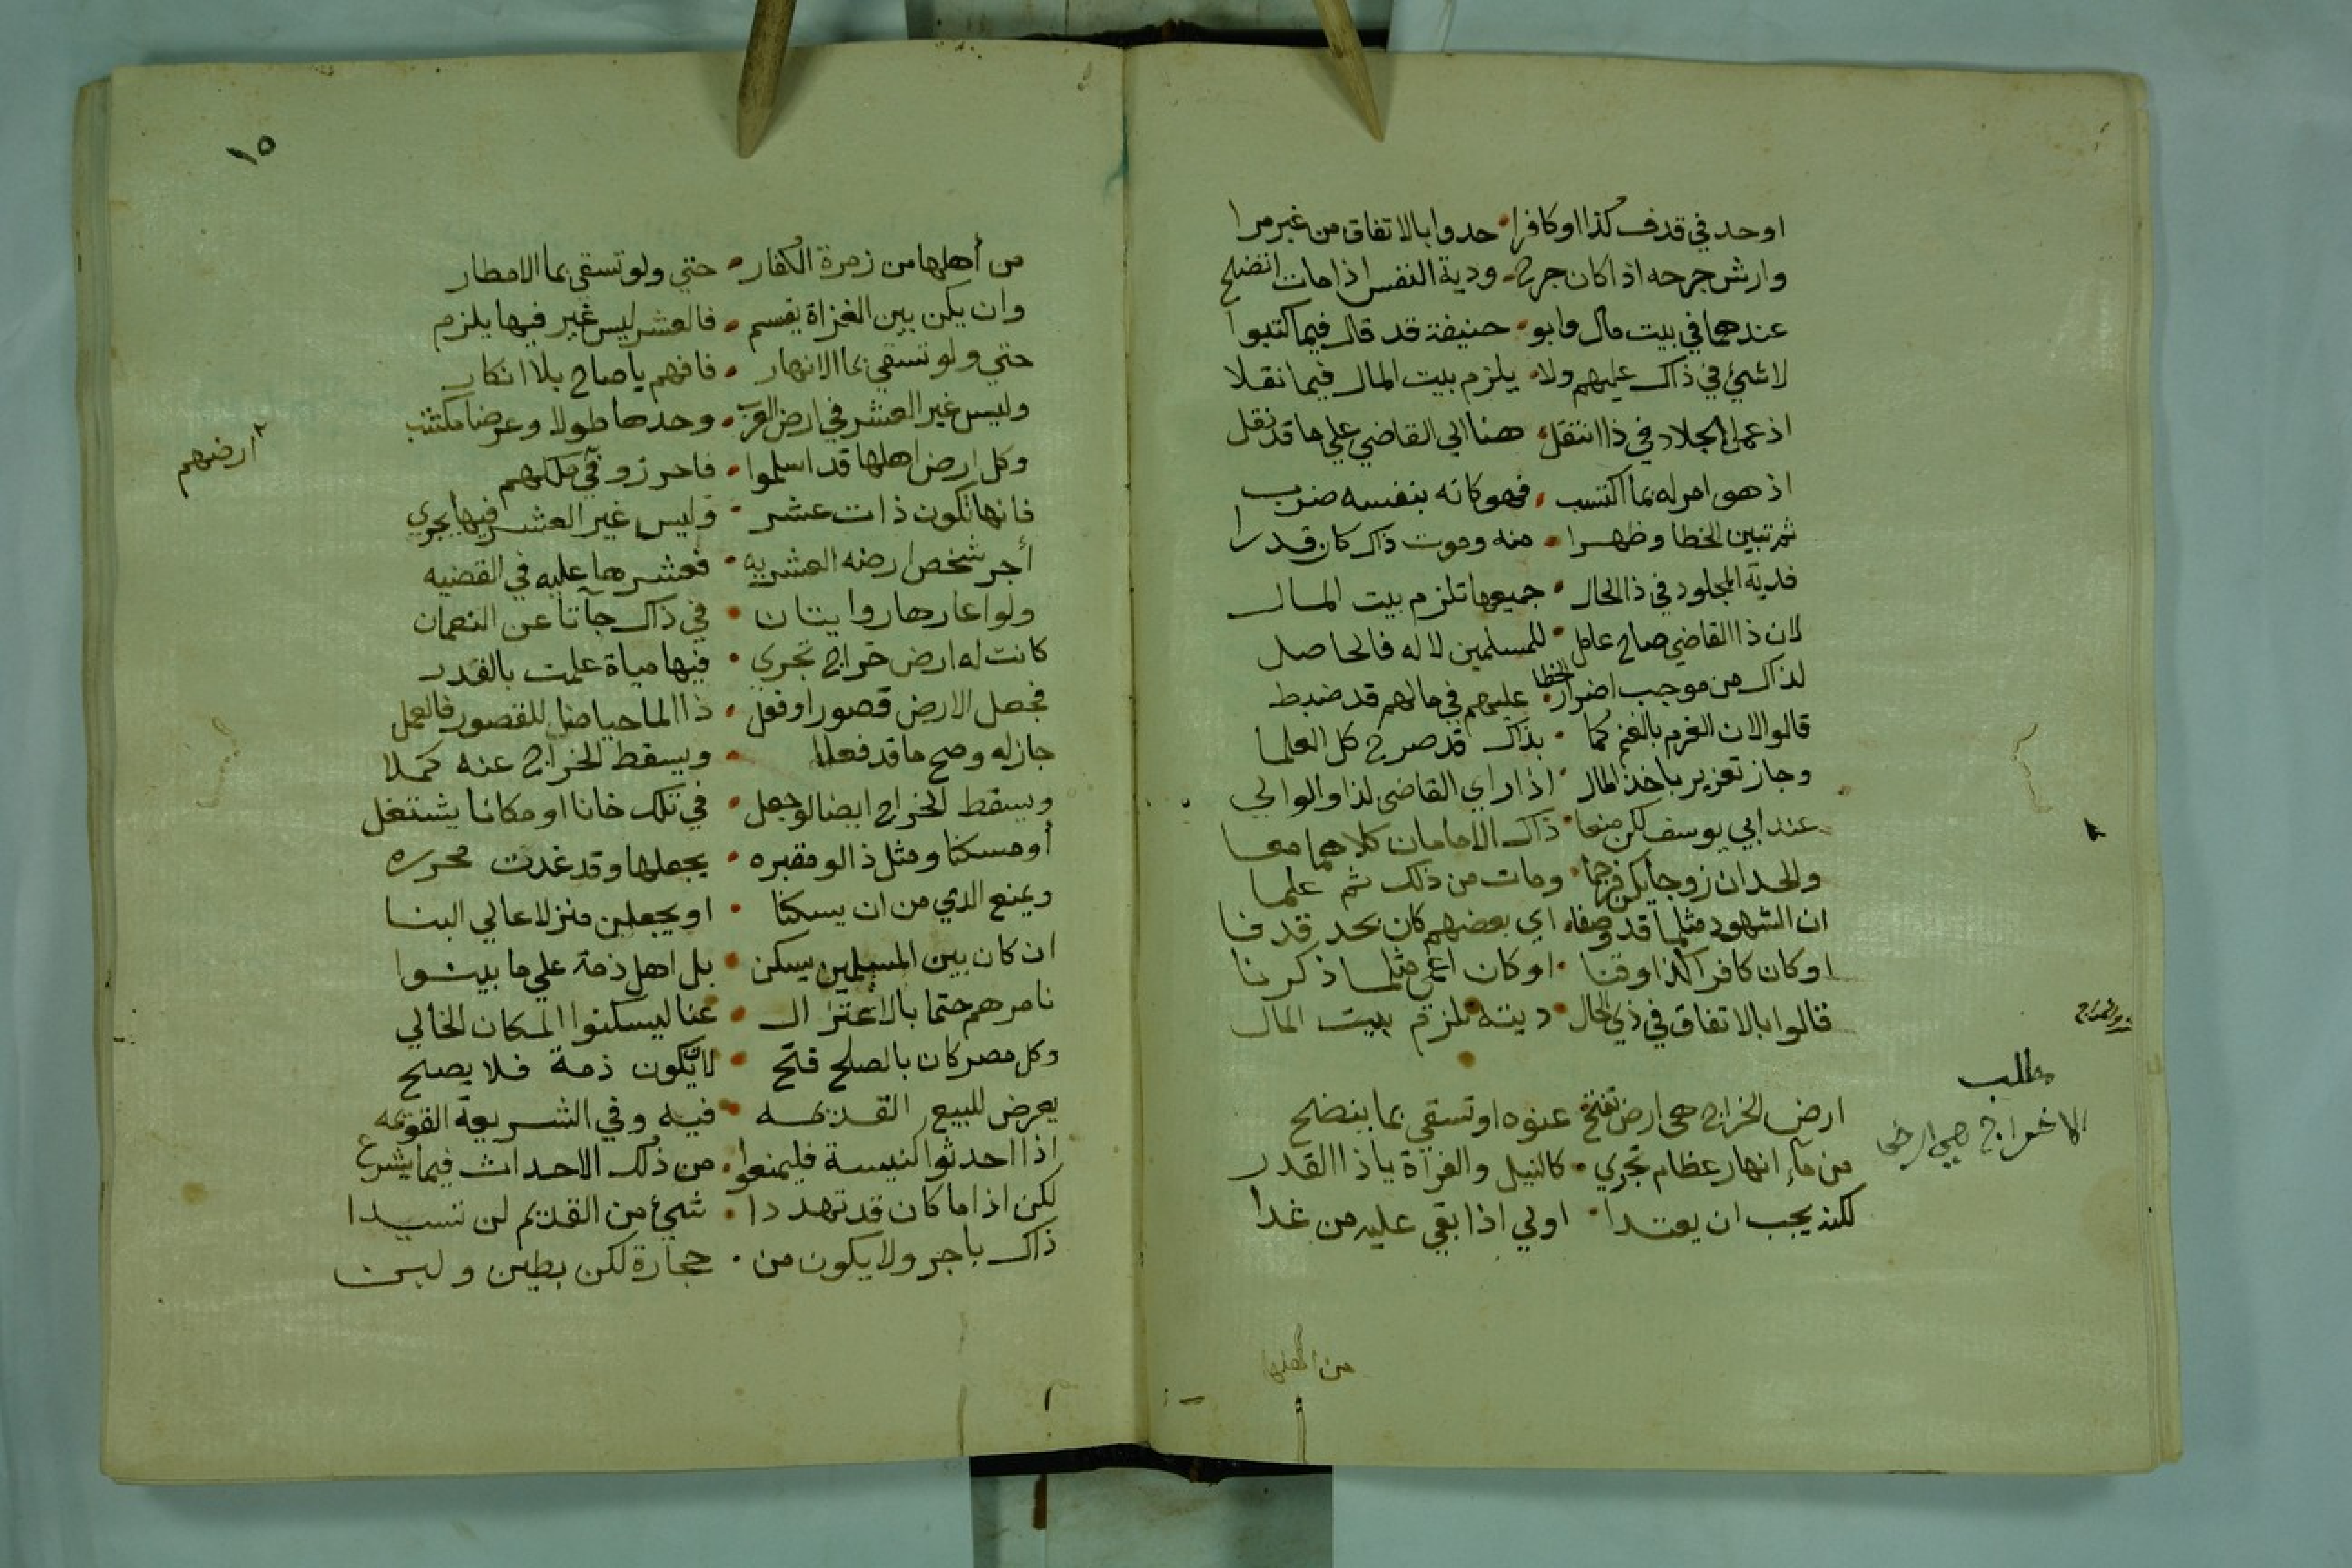 اوحد في قدف كذا اوكافرا • حدوا بالاتفاق من غير مرا
وارش جرحه اذا كان جرح • ودية النفس اذا مات اتضلح
عندهما في بيت مال وابو • حنيفة قد قال فيما كتبوا
لا شيئ في ذاك عليهم ولا • يلزم بيت المال فيما نقلا
اذ عمل الجلاد في ذا انتقل • هنا الي القاضي علي ما قد نقل
اذ هو امر له بما اكتسب • فهو كانه بنفسه ضرب
ثم تبين الخطا وظهرا • منه وموت ذاك كان قدرا
فدية المجلود في ذا الحال • جميعها تلزم بيت المال
لان ذا القاضي صاح عامل • للمسلمين لا له فالحاصل
لذاك من موجب اضرار الخطا • عليهم في مالهم قد ضبط
قالوا لان الغرم بالغنم كما • بذاك قد صرح كل العلما
وجاز تعزير باخذ المال • اذا راي القاضي لذا والوالي
عند ابي يوسف لكن منعا • ذاك الامامان كلاهما معا
والحد ان زوجا يكن فرجما • ومات من ذلك ثم علما
ان الشهود مثلما قد وصفا • اي بعضهم كان بحد قدفا
اوكان كافرا كذا اوقنا • اوكان اعمي مثلما ذكرنا
قالوا بالاتفاق في ذي الحال • ديته تلزم بيت المال
مطلب
ارض الخراج هي ارض تفتح عنوه اوتسقي بما ينضح
من مآء انهار عظام تجري • كالنيل والفرآة ياذا القدر
لكنه يجب ان يعتدا • اولي اذا بقي عليه من غدا
من اهلها
١٥
من أهلها من زمرة الكفار • حتي ولو تسقي بما الامطار
وان يكن بين الغزاة يقسم • فالعشر ليس غير فيها يلزم
حتي ولو تسقي بما الانهار • فافهم ياصاح بلا انكار
وليس غير العشر في ارض العرب • وحدها طولا وعرضا مكتتب
وكل ارض اهلها قد اسلموا • فاحرزو في ملكهم
ارضهم
فانها تكون ذات عشر • وليس غير العشر فيها يجري
أجر شخص ارضه العشريه • فعشرها عليه في القضيه
ولو اعارها روايتان • في ذاك جآتا عن النعمان
كانت له ارض خراج تجري • فيها مياة علمت بالقدر
فجعل الارض قصورا وفعل • ذا الما حياضا للقصور فالعمل
جاز له وصح ما قد فعلا • ويسقط الخراج عنه كملا
ويسقط الخراج ايضا لو جعل • في تلك خانا او مكانا يشتغل
أو مسكنا ومثل ذا لو مقبره • يجعلها وقد غدت محرره
ويمنع الذي من ان يسكنا • او يجعلن منزلا عالي البنا
ان كان بين المسلمين يسكن • بل اهل ذمة علي ما بينوا
نامرهم حتما بالاعتزال • عنا ليسكنوا المكان الخالي
وكل مصر كان بالصلح فتح • لا تكون ذمة فلا يصلح
يعرض للبيع القديمه • فيه وفي الشريعة القويمه
اذا احدثوا كنيسة فليمنعوا • من ذلك الاحداث فيما يشرع
لكن اذا ما كان قد تهددا • شيئ من القديم لن نسددا
ذاك باجر ولا يكون من • حجارة لكن بطين ولبن